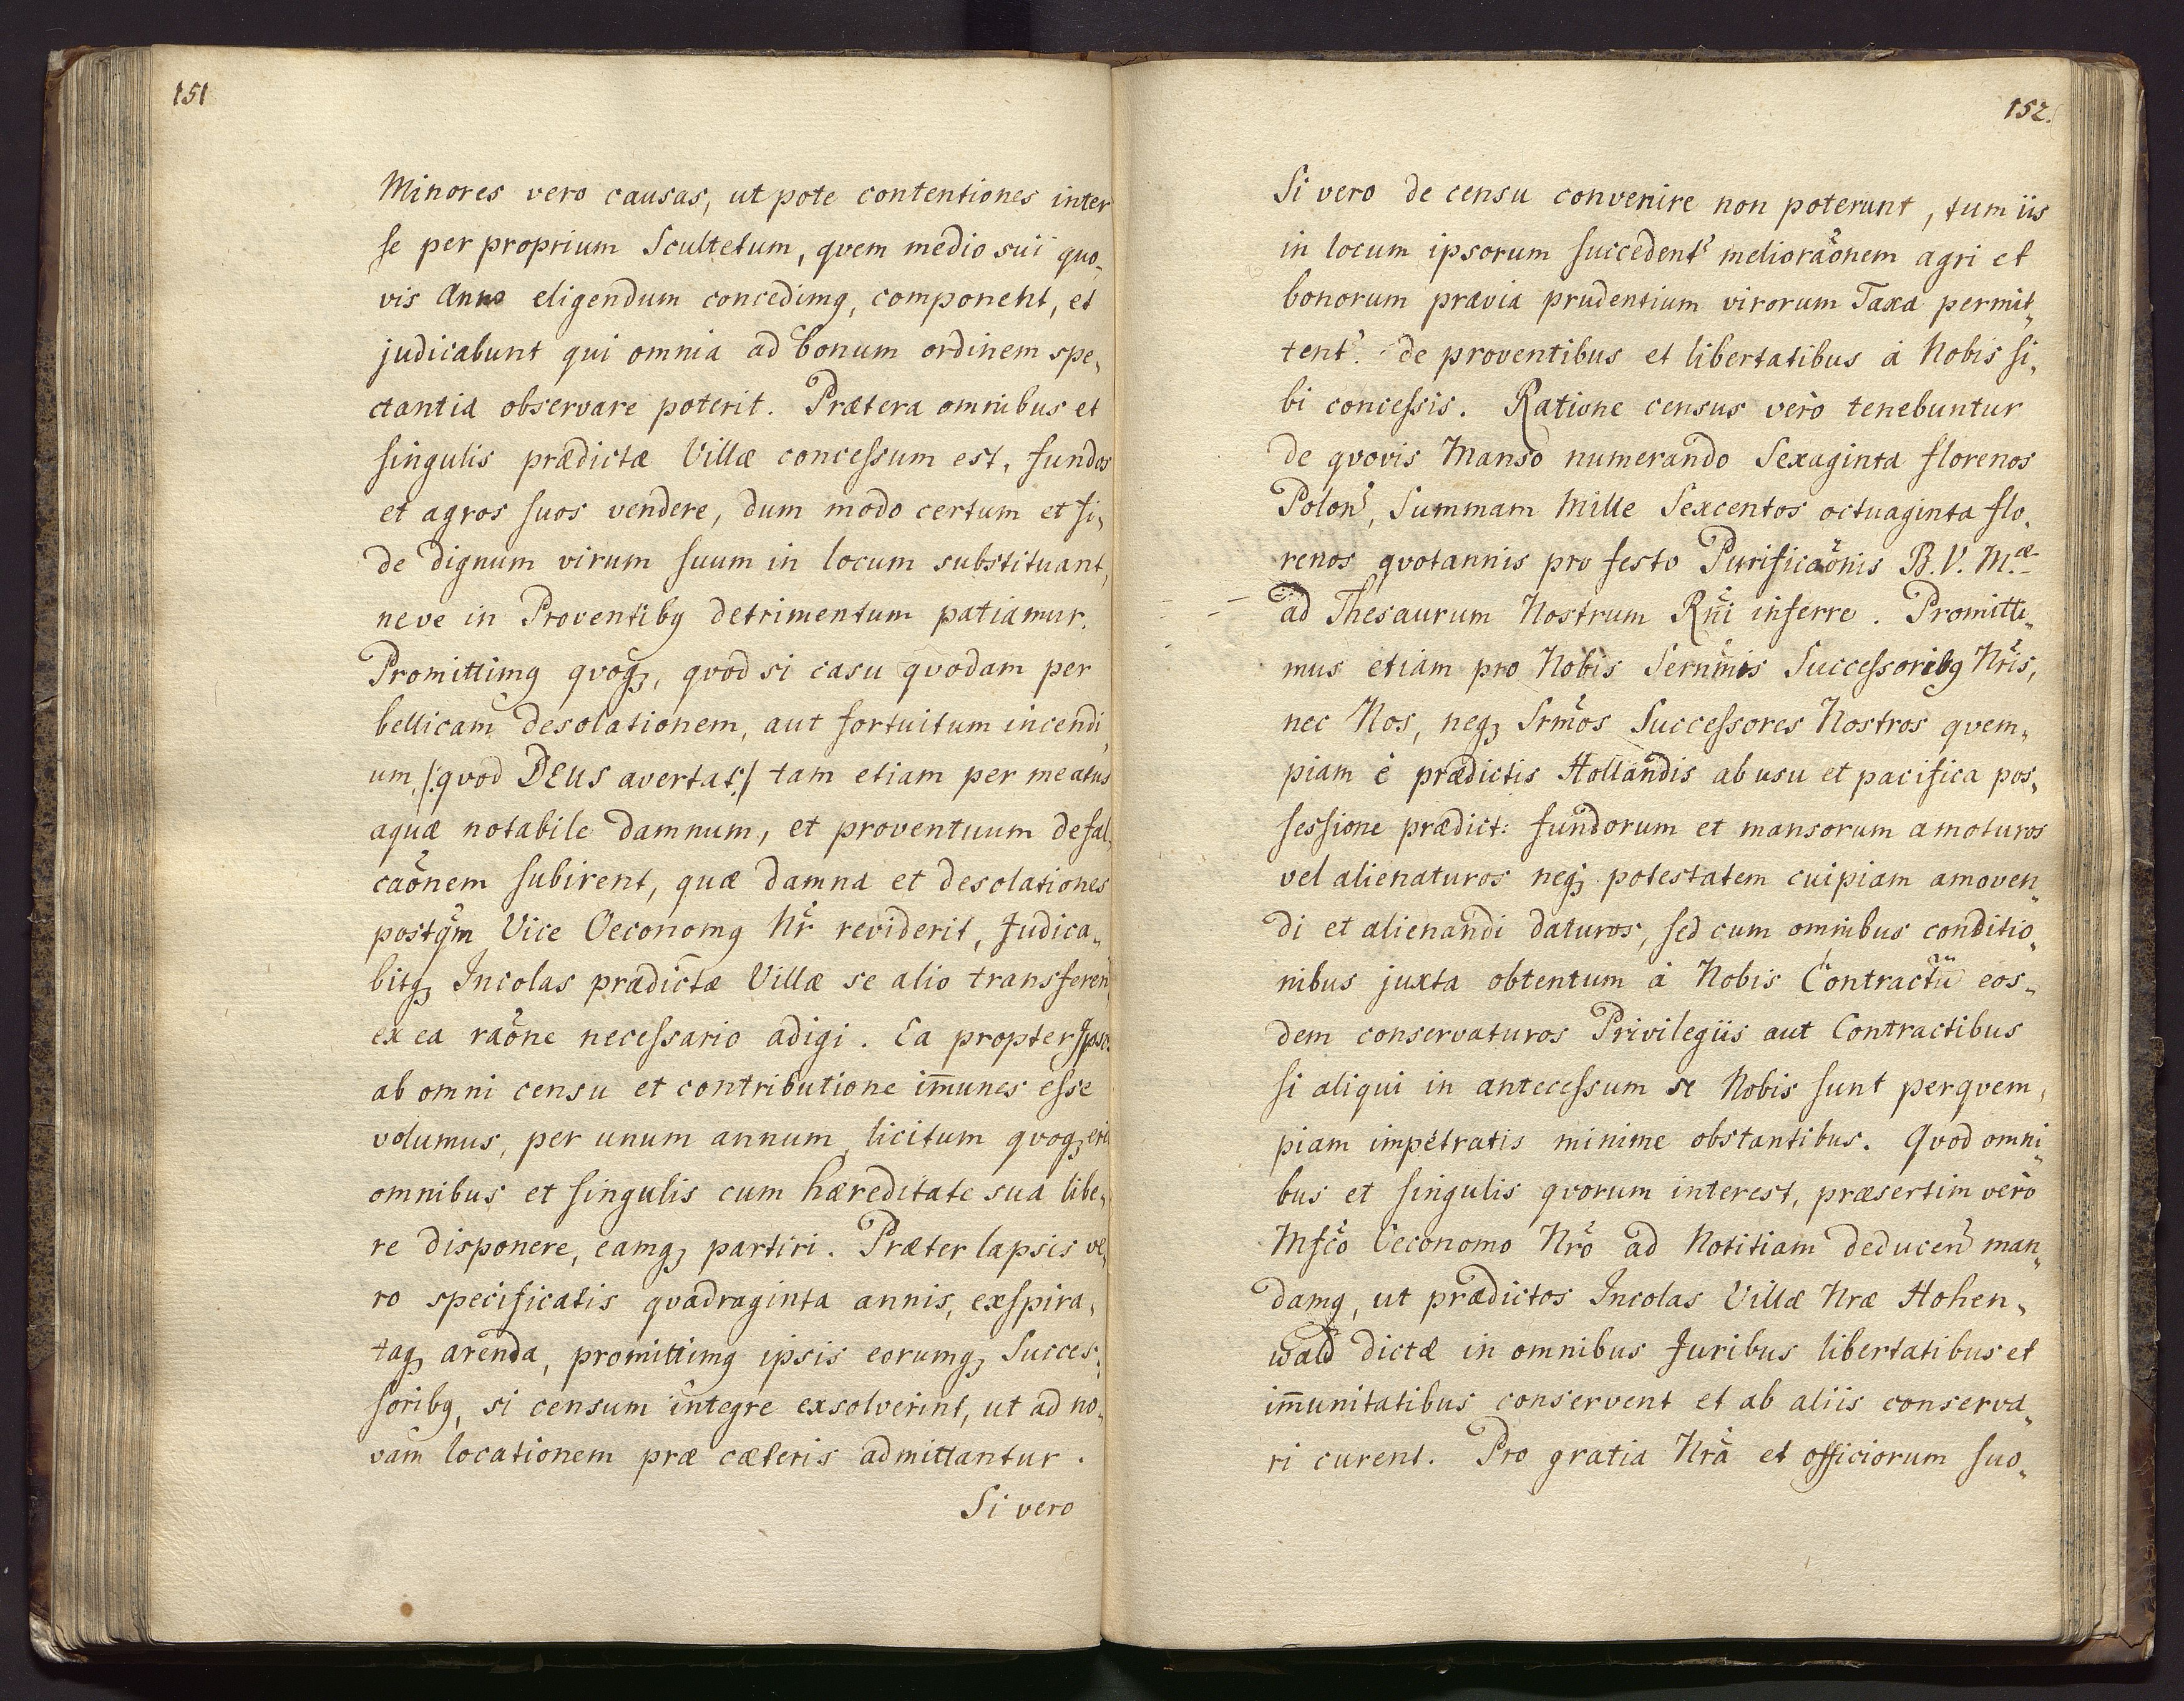 151
Minores vero causas, ut pote contentiones inter
se per proprium Scultetum, qvem medio sui quo„
vis Anno eligendum concedimq, componeht, et
judicabunt qui omnia ad bonum ordinem spe„
ctantia observare poterit. Prætera omnibus et
singulis prædictæ Villæ concessum est, fundos
et agros suos vendere, dum modo certum et fi„
de dignum virum suum in locum substituant,
neve in Proventibq detrimentum patiamur.
Promittimq qvoqȝ, qvod si casu qvodam per
bellicam desolationem, aut fortuitum incendi„
um, /: qvod DEUS avertat :/ tam etiam per meatus
aquæ notabile damnum, et proventuum defal„
caõnem subirent, quæ damna et desolationes
postqm̃ Vice Oeconomq Nr̃ reviderit, Judica„
bitqȝ Incolas prædictæ Villæ se alio transferen„
ex ea raõne necessario adigi. Ea propter Ipsos
ab omni censu et contributione im̄unes esse
volumus, per unum annum, licitum qvoqȝ erit
omnibus et singulis cum hæreditate sua libe„
re disponere, eamqȝ partiri. Præter lapsis ve„
ro specificatis qvadraginta annis, exspira„
taqȝ arenda, promittimq ipsis eorumqȝ Succes„
soribq, si censum integre exsolverint, ut ad no„
vam locationem præ cæteris admittantur.
Si vero
152.
Si vero de censu convenire non poterunt, tum iis
in locum ipsorum succedent' melioraõnem agri et
bonorum prævia prudentium virorum Taxa permit„
tent'. de proventibus et libertatibus à Nobis si„
bi concessis. Ratione census verò tenebuntur
de qvovis Manso numerando Sexaginta florenos
Polon', Summam Mille Sexcentos octuaginta flo„
renos qvotannis pro festo Purificaõnis B. V. M.æ
ad Thesaurum Nostrum Rñi inferre. Promitti„
mus etiam pro Nobis Serñmis Successoribq Nr̃is,
nec Nos, neqȝ Srm̃os Successores Nostros qvem„
piam è prædictis Hollandis ab usu et pacifica pos„
sessione prædict: fundorum et mansorum amoturos
vel alienaturos neqȝ potestatem cuipiam amoven„
di et alienandi daturos, sed cum omnibus conditio„
nibus juxta obtentum à Nobis Contractũ eos„
dem conservaturos Privilegiis aut Contractibus
si aliqui in antecessum se Nobis sunt perqvem„
piam impetratis minime obstantibus. Qvod omni„
bus et singulis qvorum interest, præsertim verò
Mfc̃o Oeconomo Nr̃o ad Notitiam deducen' man„
damq, ut prædictos Incolas Villæ Nræ Hohen„
wald dictæ in omnibus Juribus libertatibus et
im̄unitatibus conservent et ab aliis conserva„
ri curent. Pro gratia Nr̃a et officiorum suo„